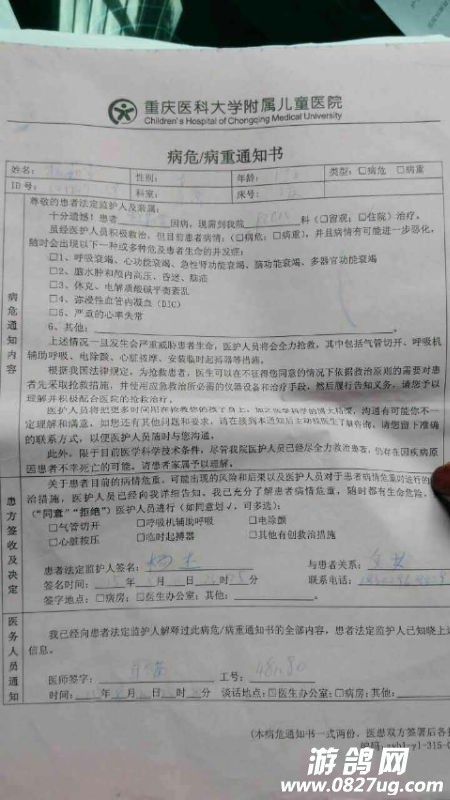 重庆医科大学附属儿童医院
Children's Hospital of Chongqing Medical University
病危/病重通知书
姓名: 性别: 年龄: 类型: □病危 □病重
ID号: 科室: 床号:
尊敬的患者法定监护人及亲属:
十分遗憾!患者 因病,现需到我院 科(□留观;□住院)治疗。
虽经医护人员积极救治,但目前患者病情:(□病危;□病重),并且病情有可能进一步恶化,
随时会出现以下一种或多种危及患者生命的并发症:
□1、呼吸衰竭、心功能衰竭、急性肾功能衰竭、脑功能衰竭、多器官功能衰竭
□2、脑水肿和颅内高压、昏迷、脑疝
□3、休克、电解质酸碱平衡紊乱
□4、弥漫性血管内凝血(DIC)
□5、严重的心率失常
6、其他:
病危通知内容
上述情况一旦发生会严重威胁患者生命,医护人员将会全力抢救,其中包括气管切开、呼吸机
辅助呼吸、电除颤、心脏按摩、安装临时起搏器等措施。
根据我国法律规定,为抢救患者,医生可以在不征得您同意的情况下依据救治原则的需要对患
者先采取抢救措施,并使用应急救治所必需的仪器设备和治疗手段,然后履行告知义务,请您予以
理解并积极配合医院的抢救治疗。
医护人员将把更多时间用在抢救您的孩子身上, 沟通有可能你不一
定理解和满意,如您还有其他问题和要求,请在接到本通知后主动找医生了解咨询,请您留下准确
的联系方式,以便医护人员随时与您沟通。
此外,限于目前医学科学技术条件,尽管我院医护人员已经尽全力救治患者,仍存在因疾病原
因患者不幸死亡的可能。请患者家属予以理解。
患方签收及决定
关于患者目前的病情危重,可能出现的风险和后果以及医护人员对于患者病情危重时进行的
治措施,医护人员已经向我详细告知。我已充分了解患者病情危重,随时都有生命危险,
("同意""拒绝")医护人员进行(如同意划√,可多选):
□气管切开 □呼吸机辅助呼吸 □电除颤
□心脏按压 □临时起搏器 □其他有创救治措施
患者法定监护人签名: 与患者关系:
签名时间: 年 月 日 时 分 联系电话:
签字地点:□病房;□医生办公室;其他:
医务人员通知
我已经向患者法定监护人解释过此病危/病重通知书的全部内容,患者法定监护人已知晓上
信息。
医师签字: 工号:
时间: 年 月 日 时 分 谈话地点:□医生办公室;□病房;其他:
(本病危通知书一式两份,医患双方签署后各
游鸽网
www.0827ug.com